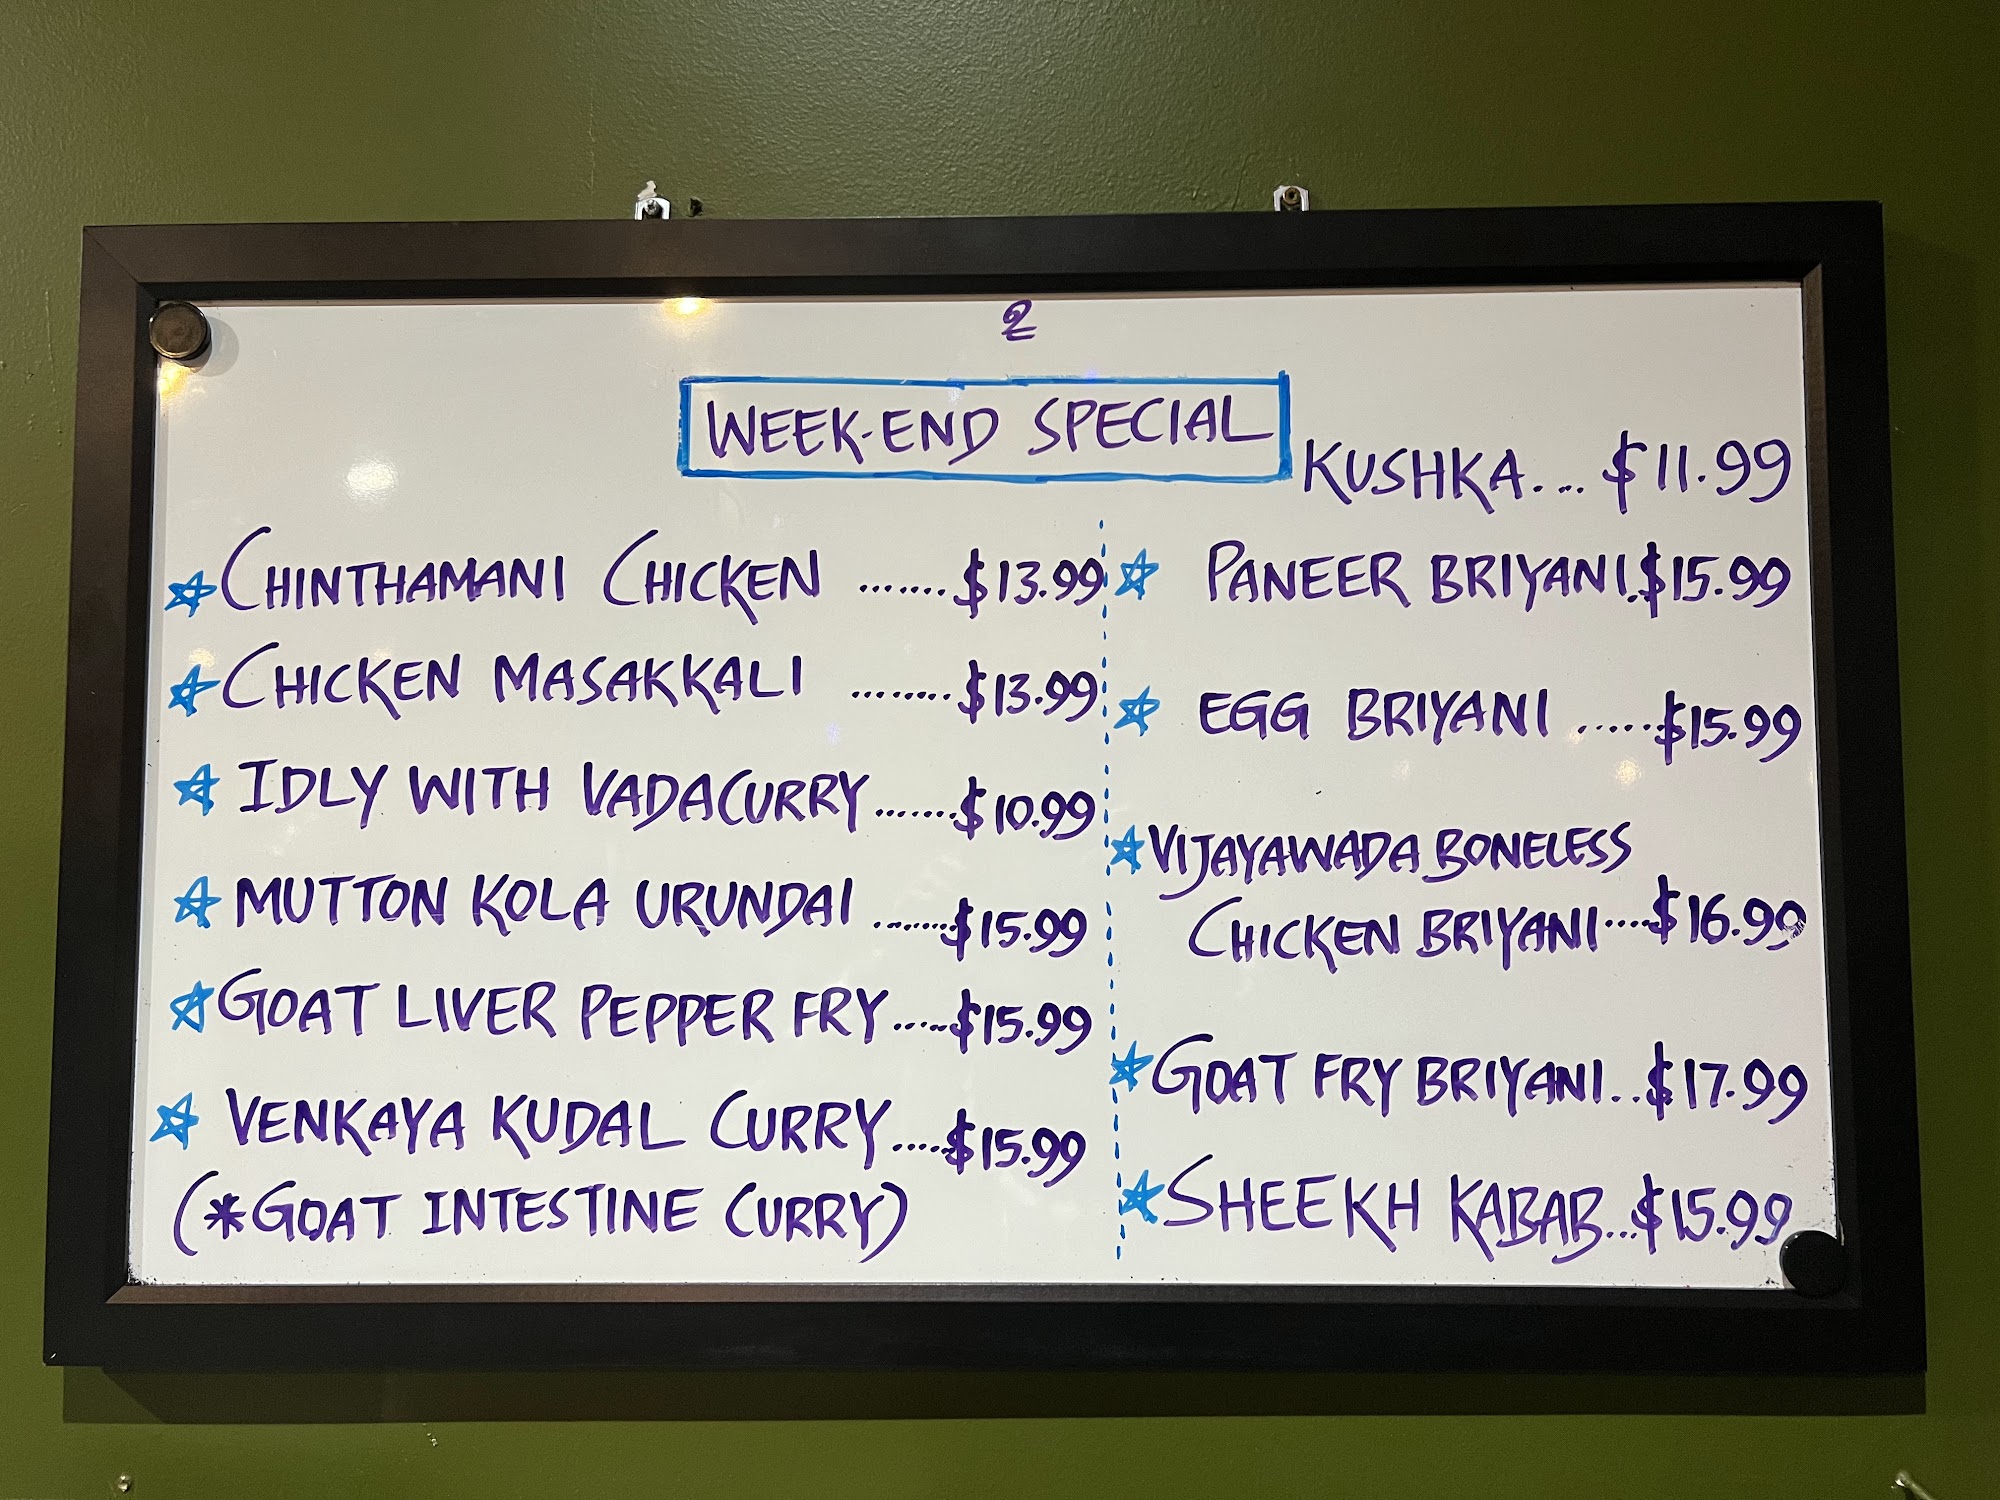 WEEK-END SPECIAL
KUSHKA... $11.99
CHINTHAMANI CHICKEN .......$13.99
CHICKEN MASAKKALI ........$13.99
IDLY WITH VADACURRY.......$10.99
MUTTON KOLA URUNDAI .......$15.99
GOAT LIVER PEPPER FRY.....$15.99
VENKAYA KUDAL CURRY.....$15.99
(*GOAT INTESTINE CURRY)
PANEER BRIYANI.$15.99
EGG BRIYANI .....$15.99
VIJAYAWADA BONELESS
CHICKEN BRIYANI....$16.99
GOAT FRY BRIYANI..$17.99
SHEEKH KABAB...$15.99